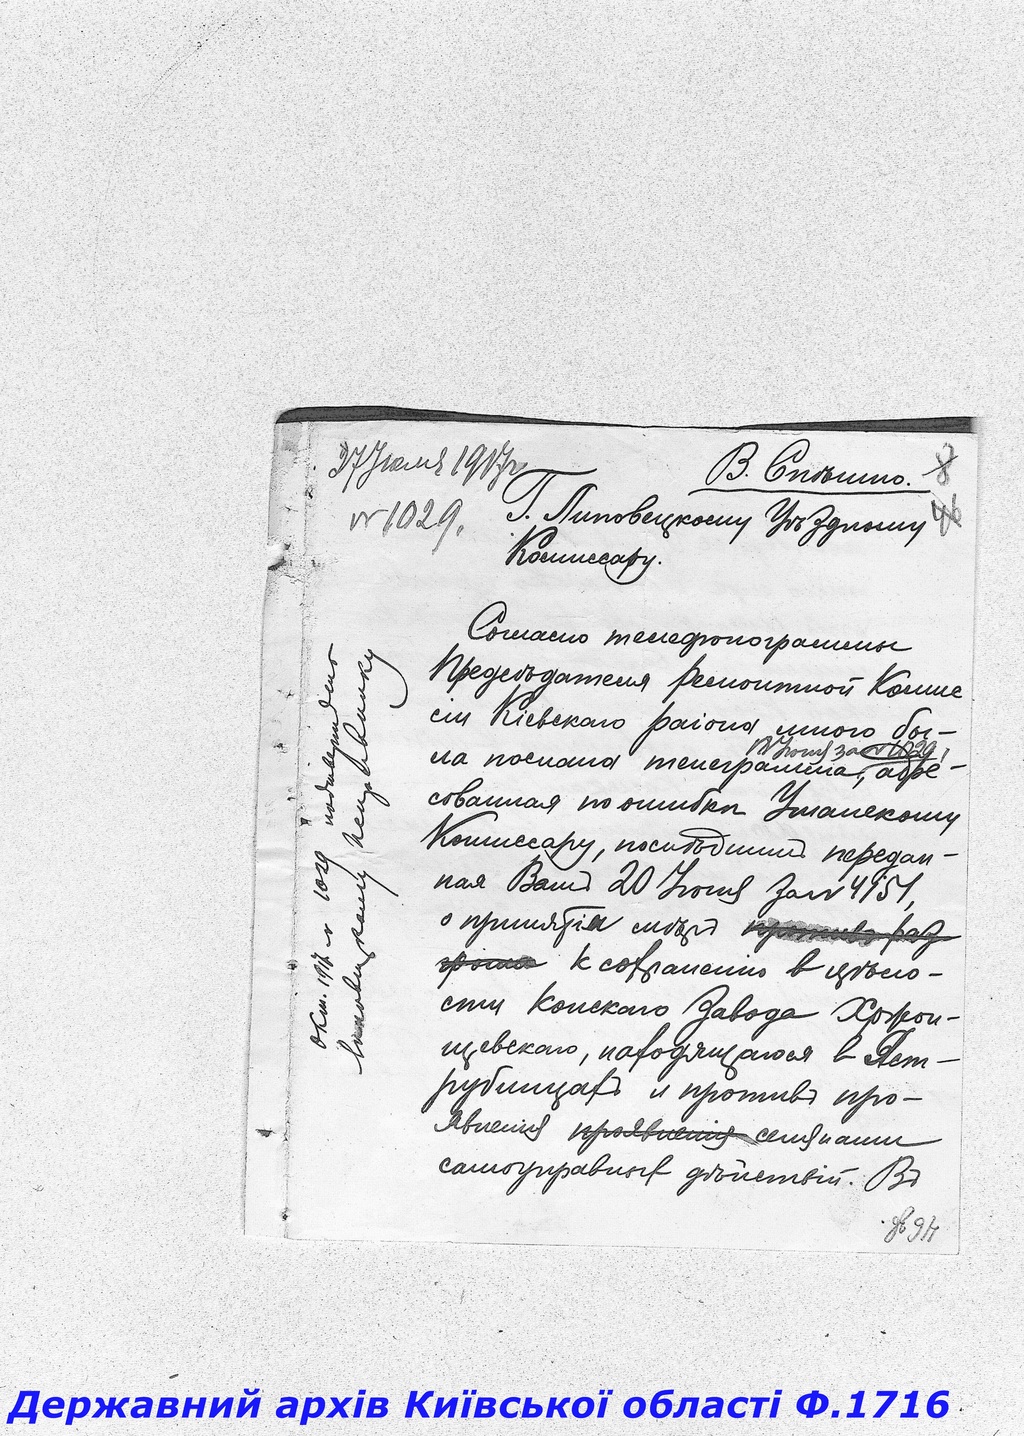 27 Июля 1917 г.
В. Спѣшно.
№ 1029.
Г. Липовецкому Уѣздному
Комиссару.
Согласно телефонограммы
Предсѣдателя Ремонтной Комис
сіи Кіевскаго района мною бы-
за № 1029,
ла послана телеграмма, адре-
сованная по ошибке Уманскому
Комиссару, послѣдним передан-
ная Вам 20 Іюля за № 4151,
о принятіи мѣръ против раз
грома к сохраненію в цѣло-
сти Конскаго Завода
щевскаго, находящагося в Яст-
рубинцах и противъ про-
явленія проявленія селянами
самоуправных дѣйствій. Въ
окт. 1917 № 1029 подтверждено
Липовецкому исправнику
Державний архів Київської області Ф.1716